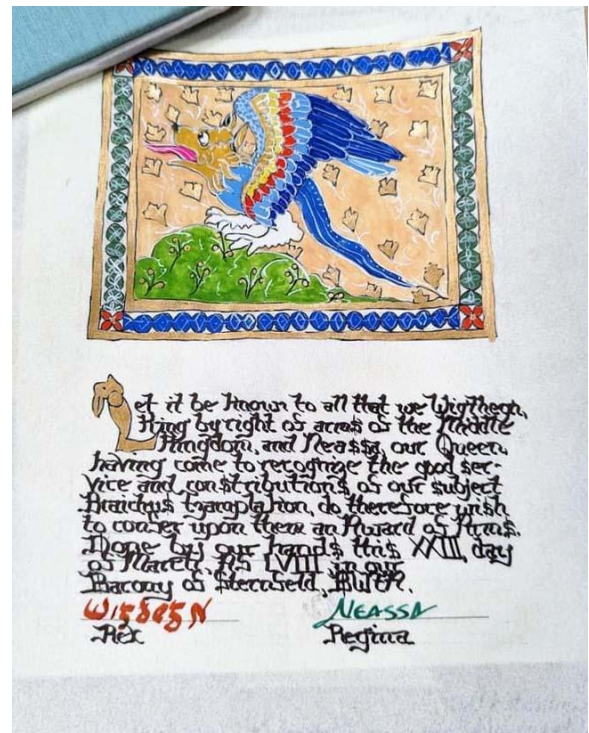 Let it be known to all that we Wigthegn,
King by right of arms of the Middle
Kingdom, and Neassa, our Queen,
having come to recognize the good ser-
vice and contributions of our subject
do therefore wish
to confer upon them an Award of Arms.
Done by our hands this XXIII day
of March, AS LVIII in our
Barony of Sternfeld, BWTH.
Neassa
Rex
Regina